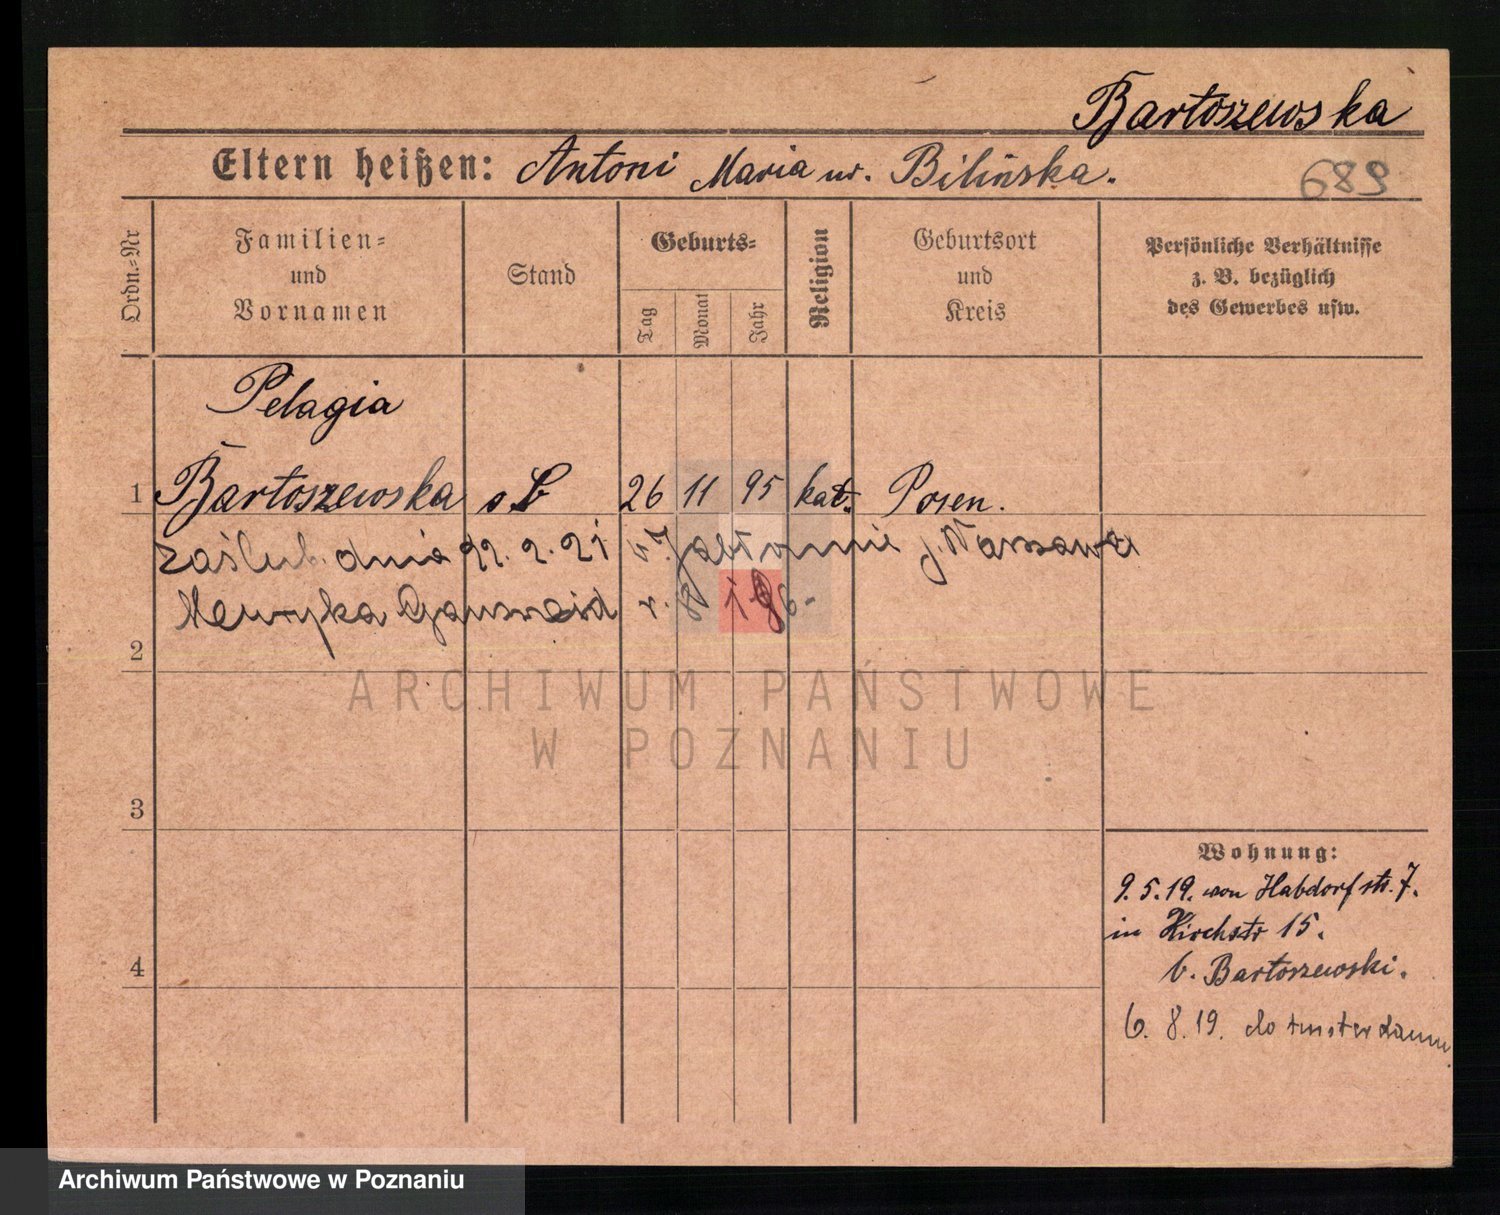 Bartoszewska
Eltern heißen: Antoni Maria ur. Bilińska.
689
Ordn.-Nr
Familien-
und
Vornamen
Stand
Geburts-
Tag
Monat
Jahr
Religion
Geburtsort
und
Kreis
Persönliche Verhältnisse
z. B. bezüglich
des Gewerbes usw.
Pelagia
1 Bartoszewska 26 11 95 kat. Posen.
zaślub. dnia 22. 2. 21 w Jabłonnie p. Warszawa
Henryka r.
2
ARCHIWUM PAŃSTWOWE
W POZNANIU
3
Wohnung:
9.5.19. von Habdorfstr. 7.
in Kirchstr 15.
b. Bartoszewski.
4
6. 8. 19. do Amsterdamu
Archiwum Państwowe w Poznaniu